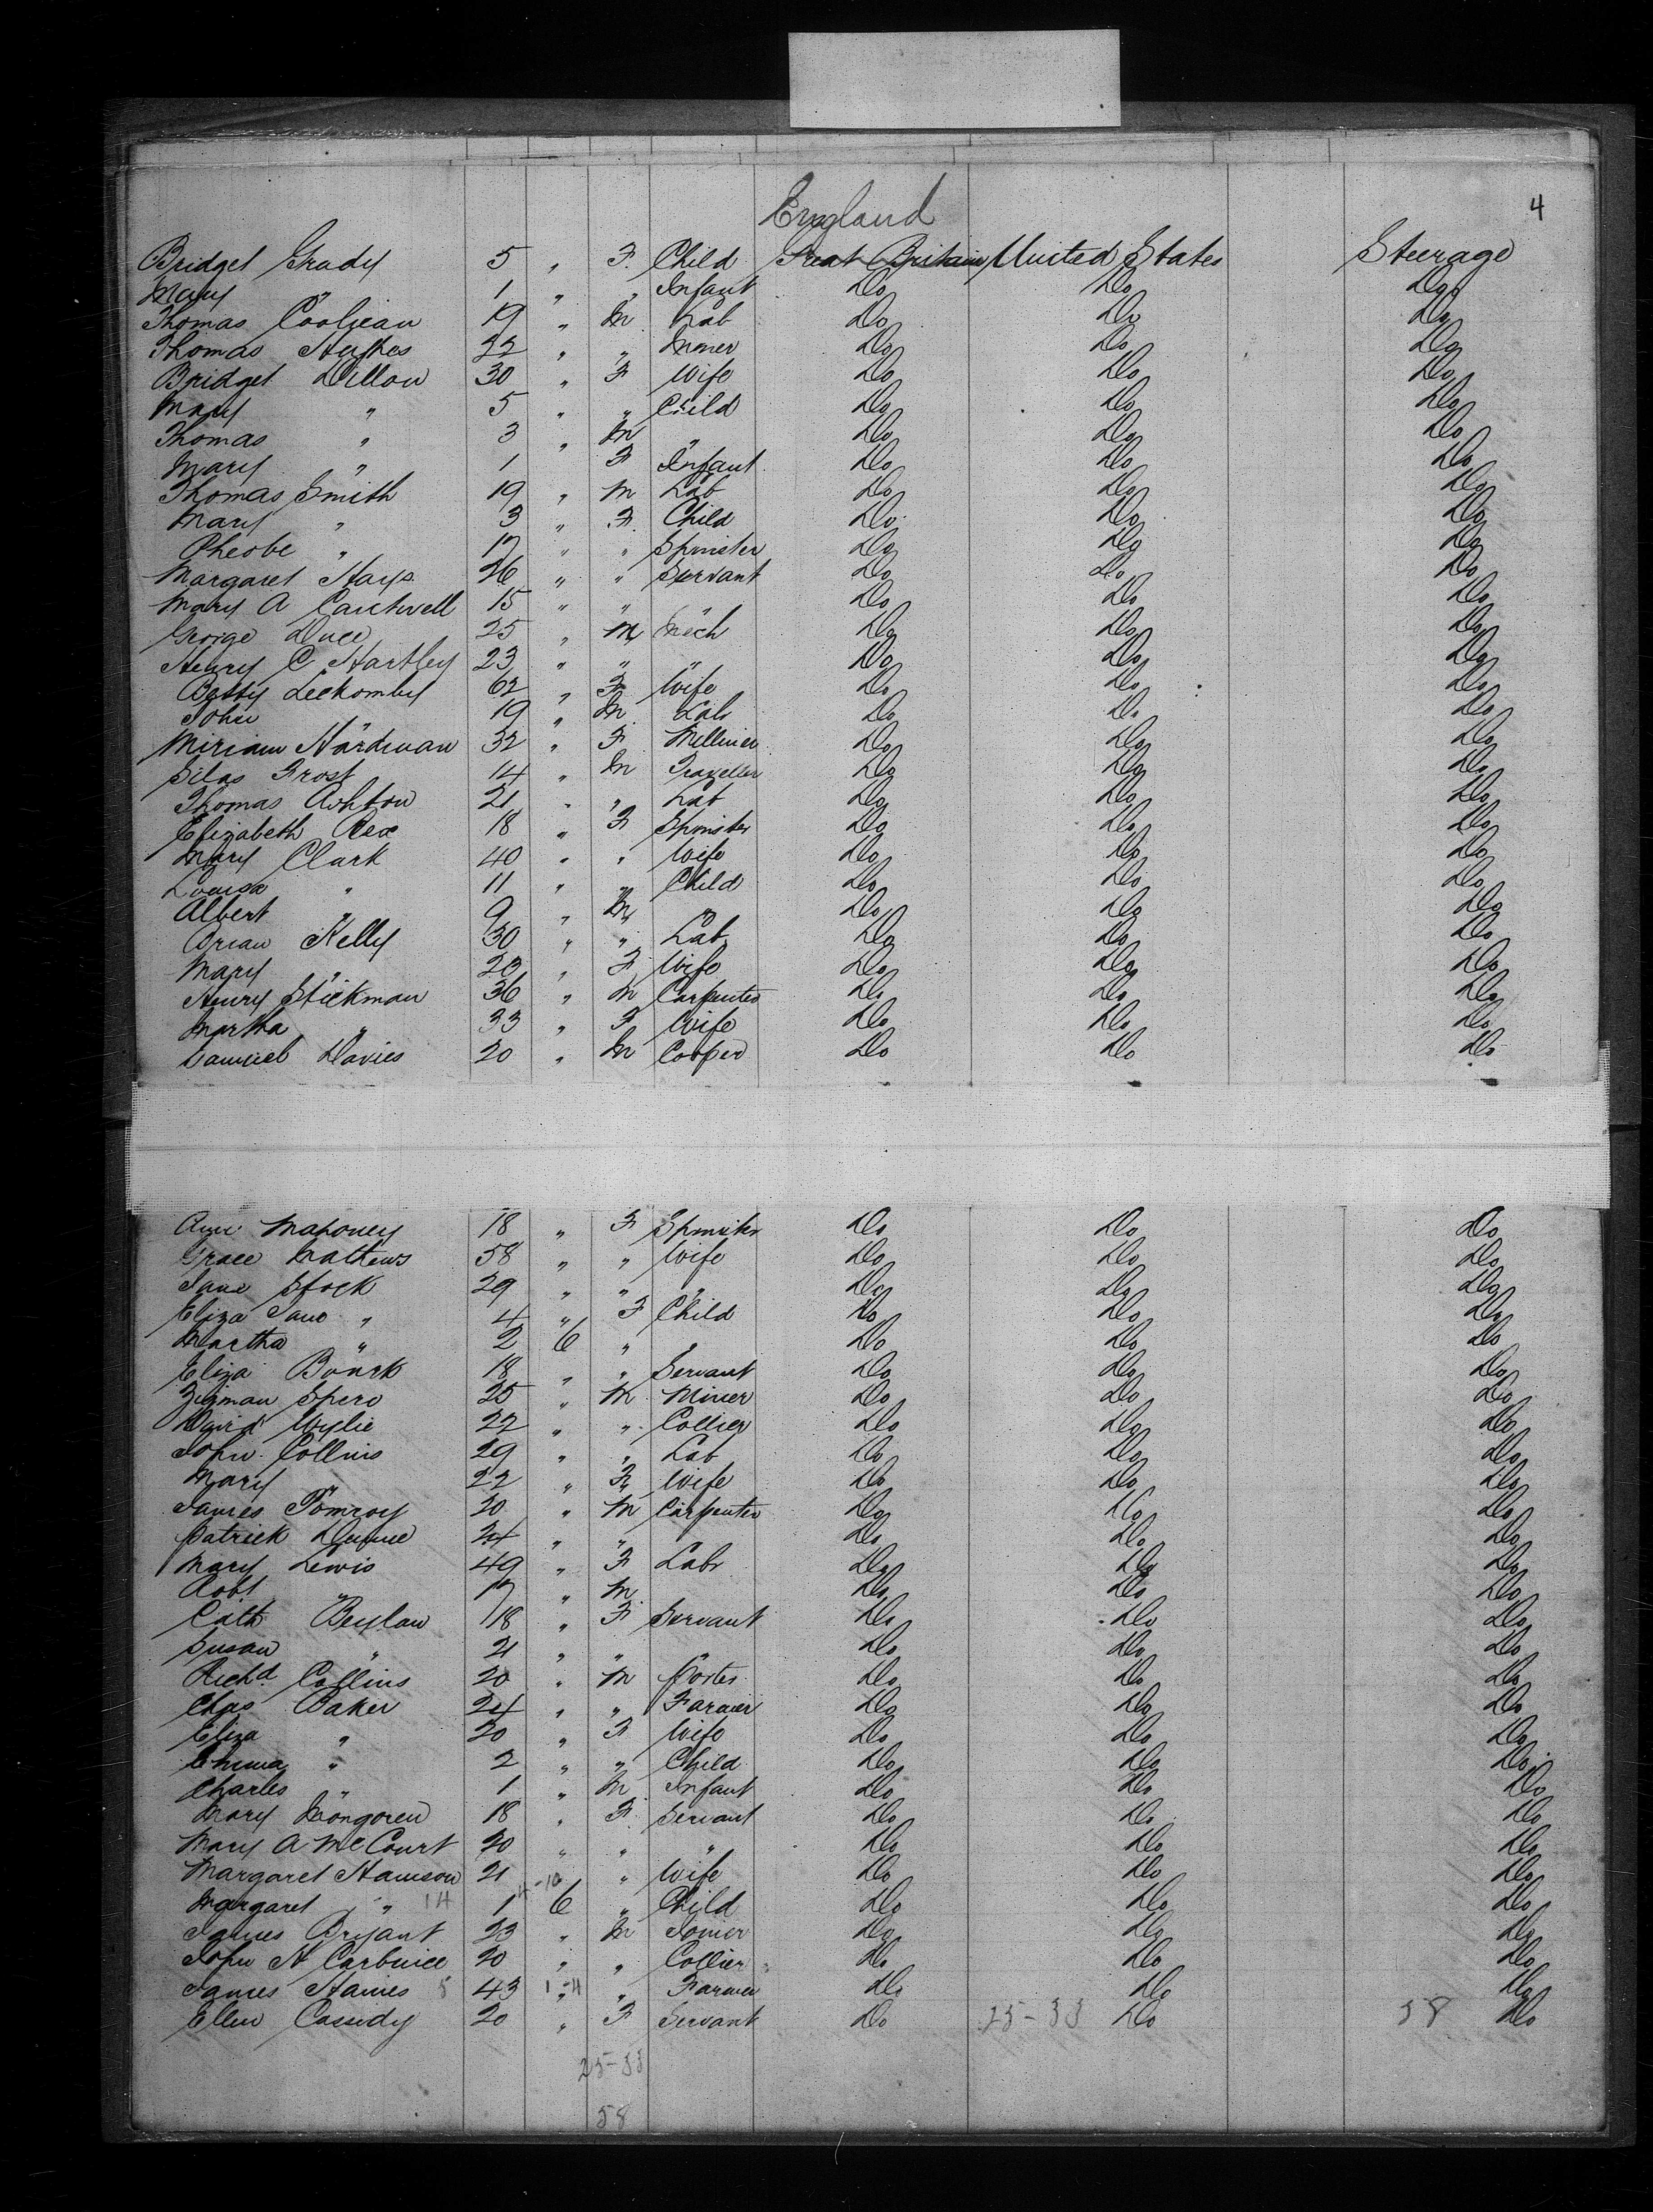 4
England
Bridget Grady 5 " F. Child Great Britain United States Steerage
Mary " 1 " " Infant Do Do Do
Thomas 19 " M Lab Do Do Do
Thomas Hughes 22 " " Miner Do Do Do
Bridget Dillon 30 " F Wife Do Do Do
Mary " 5 " " Child Do Do Do
Thomas " 3 " M " Do Do Do
Mary " 1 F Infant Do Do Do
Thomas Smith 19 " M Lab Do Do Do
Mary " 3 " F. Child Do Do Do
Pheobe " 17 " " Spinster Do Do Do
Margaret Hays 26 " " Servant Do Do Do
Mary A Cantwell 15 " " " Do Do Do
George Duce 25 " M Mech Do Do Do
Henry C Hartley 23 " " " Do Do Do
Betty 62 " F Wife Do Do Do
John " 19 " M Lab Do Do Do
Miriam Hardman 32 " F Milliner Do Do Do
Silas Frost 14 " M Traveller Do Do Do
Thomas Ashton 21 " " Lab Do Do Do
Elizabeth Rex 18 " F Spinster Do Do Do
Mary Clark 40 " " Wife Do Do Do
Louisa " 11 " " Child Do Do Do
Albert " 9 " M " Do Do Do
Brian Kelly 30 " " Lab Do Do Do
Mary " 20 " F Wife Do Do Do
Henry Stickman 36 " M Carpenter Do Do Do
Martha " 33 " F Wife Do Do Do
Samuel Davies 20 " M Cooper Do Do Do
Ann Mahoney 18 " F Spinster Do Do Do
Grace Mathews 58 " " Wife Do Do Do
Jane Stock 29 " " " Do Do Do
Eliza Jane " 4 " F Child Do Do Do
Martha " 2 6 " " Do Do Do
Eliza Bourk 18 " " Servant Do Do Do
Zigman Spero 25 " M Miner Do Do Do
David Wylie 22 " " Collier Do Do Do
John Collins 29 " " Lab Do Do Do
Mary " 22 " F Wife Do Do Do
James Pomroy 20 " M Carpenter Do Do Do
Patrick Dunne 24 " " " Do Do Do
Mary Lewis 49 " F Labr Do Do Do
Robt " 17 " M Do Do Do
Cath Beylan 18 " F Servant Do Do Do
Susan " 21 " " " Do Do Do
Richd. Collins 20 " M Porter Do Do Do
Chas Baker 24 " " Farmer Do Do Do
Eliza " 20 " F Wife Do Do Do
Emma " 2 " " Child Do Do Do
Charles " 1 " M Infant Do Do Do
Mary Mongoren 18 " F. Servant Do Do Do
Mary A McCourt 20 " " " Do Do Do
Margaret 21 " Wife Do Do Do
Margaret " 14 1 6 " Child Do Do Do
James Bryant 23 " M Joiner Do Do Do
John H 20 " " Collier Do Do Do
James Haines 5 43 1-11 " " Farmer Do Do Do
Ellen Cassidy 20 " F Servant Do 25-33 Do 58 Do
25-33
58